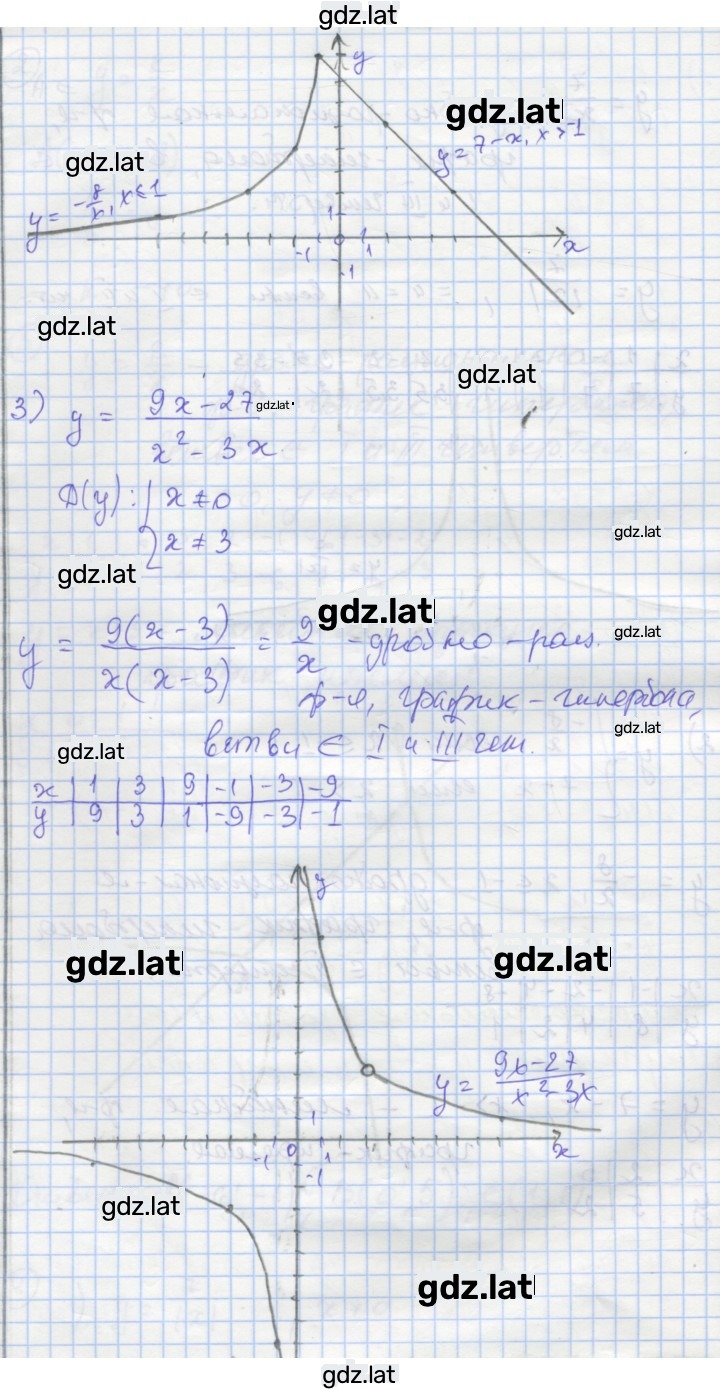 gdz.lat
y
gdz.lat
y = 7 - x, x > -1
gdz.lat
y = -8/x, x ≤ 1
1
0 1 x
-1
-1
gdz.lat
gdz.lat
3) y = (9x - 27)/(x² - 3x)
gdz.lat
Д(y): { x ≠ 0
{ x ≠ 3
gdz.lat
gdz.lat
gdz.lat
y = 9(x - 3)/x(x - 3) = 9/x - дробно - рац.
gdz.lat
ф-я, график - гипербола,
gdz.lat
ветви ∈ I и III чет.
gdz.lat
x | 1 | 3 | 9 | -1 | -3 | -9
y | 9 | 3 | 1 | -9 | -3 | -1
y
gdz.lat
gdz.lat
y = (9x - 27)/(x² - 3x)
1
-1 0 1 x
-1
gdz.lat
gdz.lat
gdz.lat